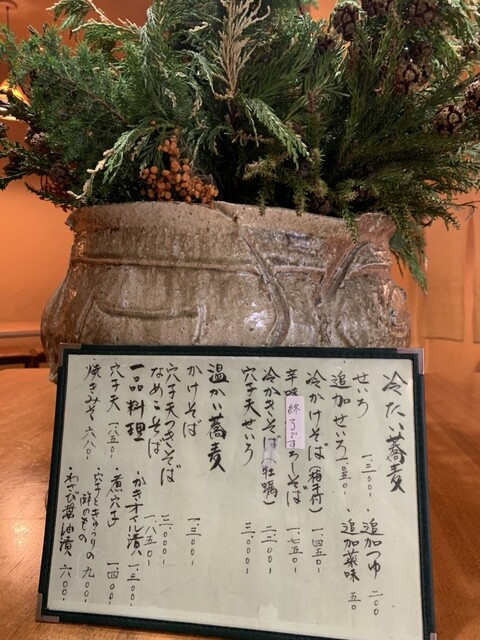 冷たい蕎麦
せいろ 一、三〇〇-
追加つゆ 二〇〇
追加せいろ 一、〇五〇-
追加薬味 五〇
冷かけそば（梅干付） 一、四五〇-
辛味 終了です ろしそば 一、七五〇-
冷かきそば（牡蠣） 二、二〇〇-
穴子天せいろ 三、〇〇〇-
温かい蕎麦
かけそば 一、三〇〇-
穴子天つきそば 三、〇〇〇-
なめこそば 一、八五〇-
一品料理
かきオイル漬 一、三〇〇-
穴子天 一、八五〇-
煮穴子 一、四〇〇-
焼きみそ 六八〇-
穴子ときゅうりの酢のもの 九〇〇-
わさび醤油漬 六〇〇-